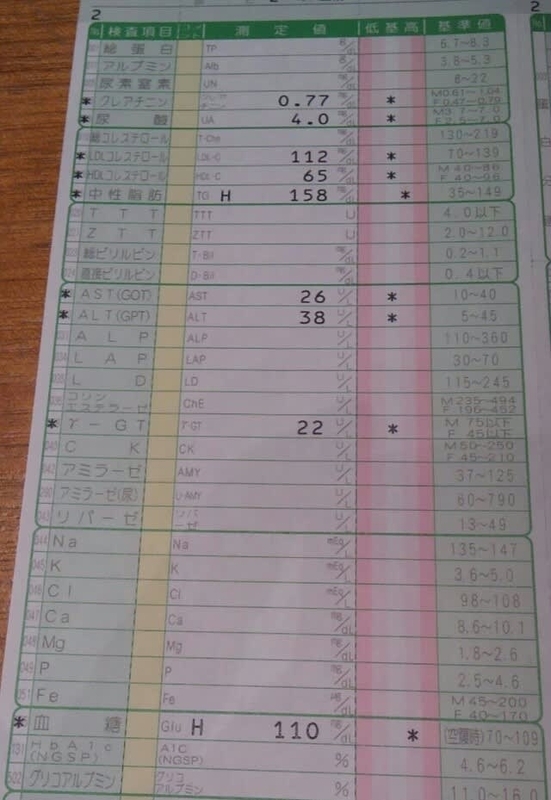 2
№ 検査項目 コメント 測定値 低基高 基準値
総蛋白 TP g/dL 6.7~8.3
アルブミン Alb g/dL 3.8~5.3
尿素窒素 UN mg/dL 8~22
* クレアチニン 0.77 mg/dL * M0.61~1.04 F0.47~0.79
* 尿酸 UA 4.0 mg/dL *
総コレステロール T-Cho mg/dL 130~219
* LDLコレステロール LDL-C 112 mg/dL * 70~139
* HDLコレステロール HDL-C 65 mg/dL *
* 中性脂肪 TG H 158 mg/dL * 35~149
TTT TTT U 4.0以下
ZTT ZTT U 2.0~12.0
総ビリルビン T-Bil mg/dL 0.2~1.1
024 直接ビリルビン D-Bil mg/dL 0.4以下
* AST(GOT) AST 26 U/L * 10~40
* ALT(GPT) ALT 38 U/L * 5~45
ALP ALP U/L 110~360
034 LAP LAP U/L 30~70
LD LD U/L 115~245
036 コリンエステラーゼ ChE U/L M 235~494 F 196~452
* γ-GT γ-GT 22 U/L * M 75以下 F 45以下
040 CK CK U/L M50~250 F 45~210
042 アミラーゼ AMY U/L 37~125
アミラーゼ(尿) U-AMY U/L 60~790
043 リパーゼ リパーゼ U/L 13~49
044 Na Na mEq/L 135~147
045 K K mEq/L 3.6~5.0
046 Cl Cl mEq/L 98~108
047 Ca Ca mg/dL 8.6~10.1
048 Mg Mg mg/dL 1.8~2.6
049 P P mg/dL 2.5~4.6
051 Fe Fe M45~200 F 40~170
* 血糖 Glu H 110 mg/dL * (空腹時)70~109
131 HbA1c(NGSP) A1C(NGSP) % 4.6~6.2
502 グリコアルブミン グリコアルブミン % 11.0~16.0